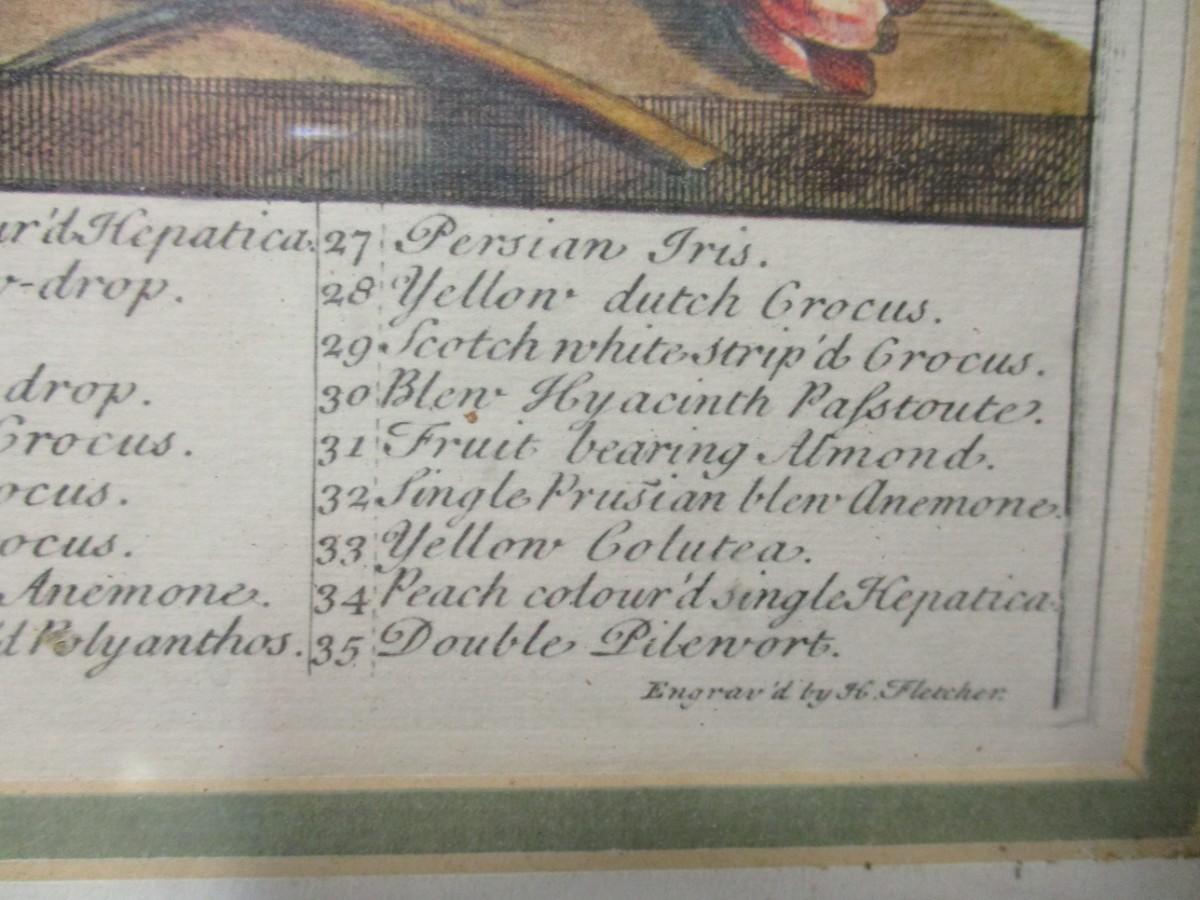 ur'd Hepatica.
-drop.
drop.
Crocus.
ocus.
ocus.
Anemone.
'd Polyanthos.
27 Persian Iris.
28 Yellow dutch Crocus.
29 Scotch white strip'd Crocus.
30 Blew Hyacinth Paſstoute.
31 Fruit bearing Almond.
32 Single Prusian blew Anemone.
33 Yellow Colutea.
34 Peach colour'd single Hepatica.
35 Double Pilewort.
Engrav'd by H. Fletcher.